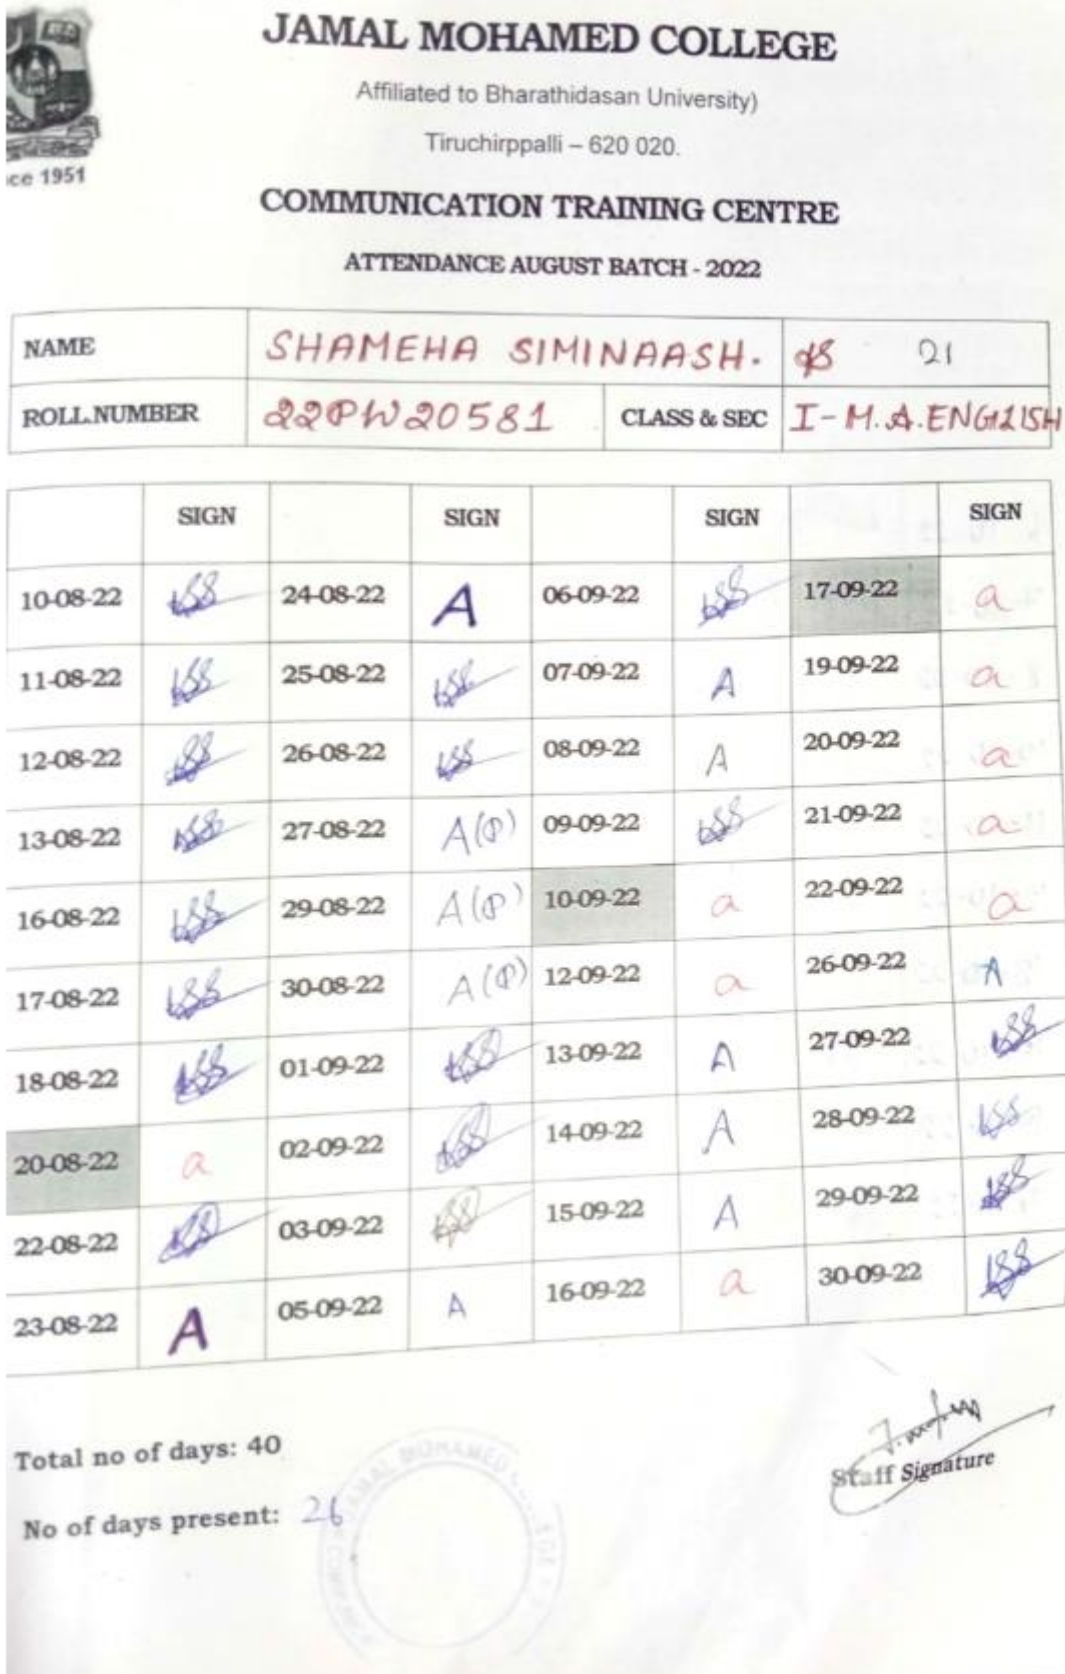 JAMAL MOHAMED COLLEGE
Affiliated to Bharathidasan University)
Tiruchirppalli – 620 020.
ce 1951
COMMUNICATION TRAINING CENTRE
ATTENDANCE AUGUST BATCH - 2022
NAME SHAMEHA SIMINAASH. 21
ROLL.NUMBER 22PW20581 CLASS & SEC I - M.A. ENGLISH
SIGN SIGN SIGN SIGN
10-08-22 24-08-22 A 06-09-22 17-09-22 a
11-08-22 25-08-22 07-09-22 A 19-09-22 a
12-08-22 26-08-22 08-09-22 A 20-09-22 a
13-08-22 27-08-22 A(P) 09-09-22 21-09-22 a
16-08-22 29-08-22 A(P) 10-09-22 a 22-09-22 a
17-08-22 30-08-22 A(P) 12-09-22 a 26-09-22 A
18-08-22 01-09-22 13-09-22 A 27-09-22
20-08-22 a 02-09-22 14-09-22 A 28-09-22
22-08-22 03-09-22 15-09-22 A 29-09-22
23-08-22 A 05-09-22 A 16-09-22 a 30-09-22
Total no of days: 40
Staff Signature
No of days present: 26